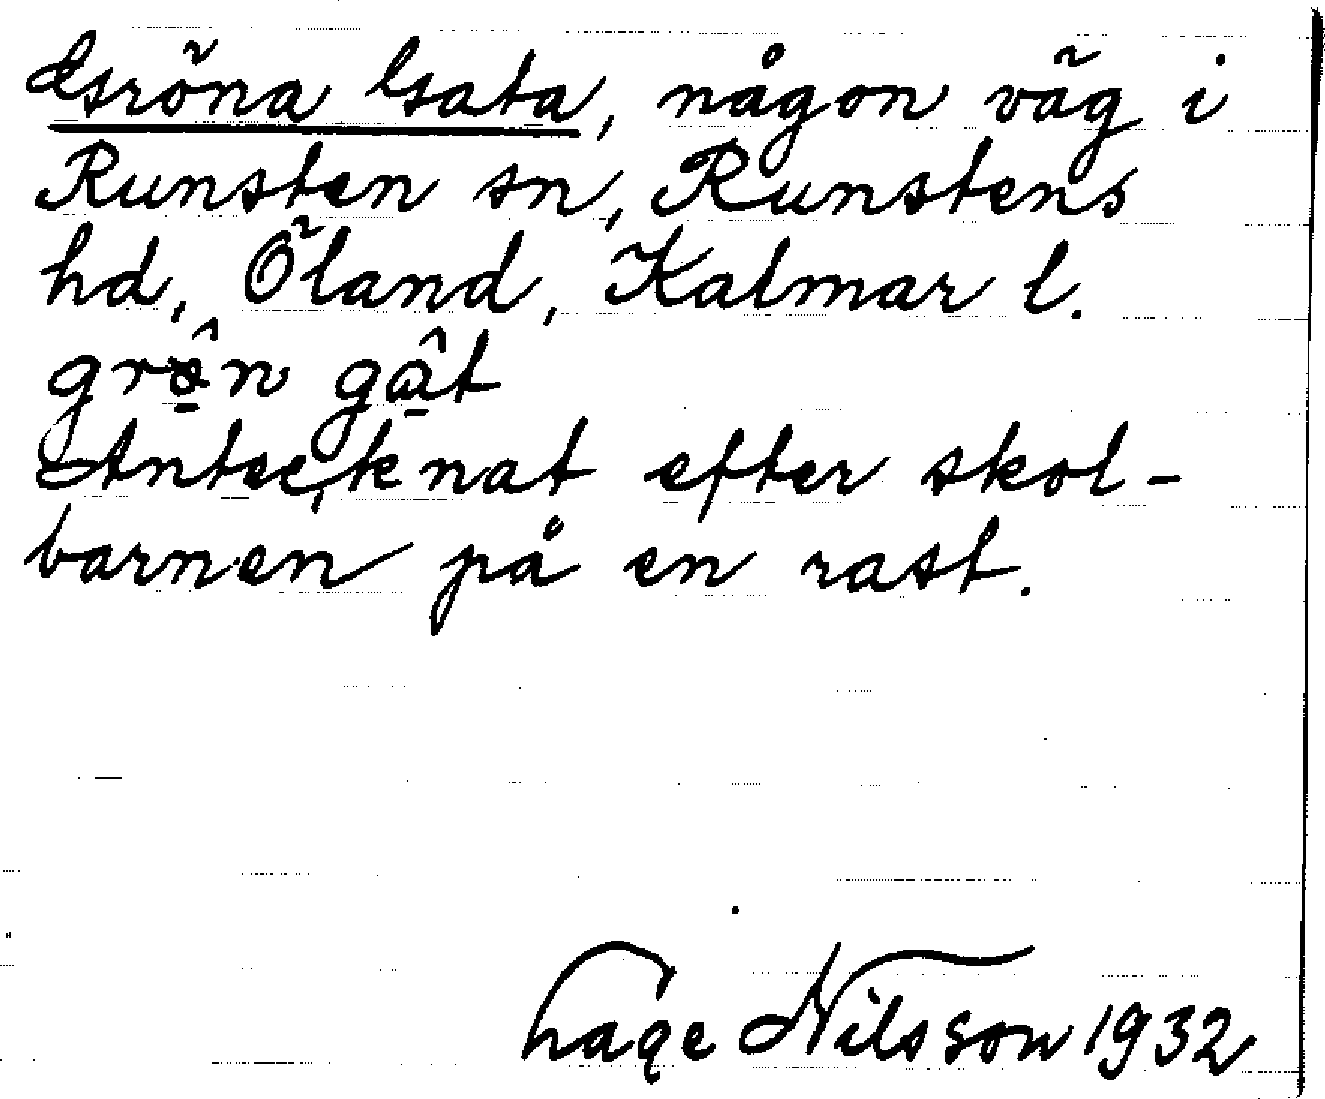 Gröna Gata, någon väg i
Runsten sn, Runstens
hd, Öland, Kalmar l.
grö̂n gât
Antecknat efter skol-
barnen på en rast.
Nilsson 1932